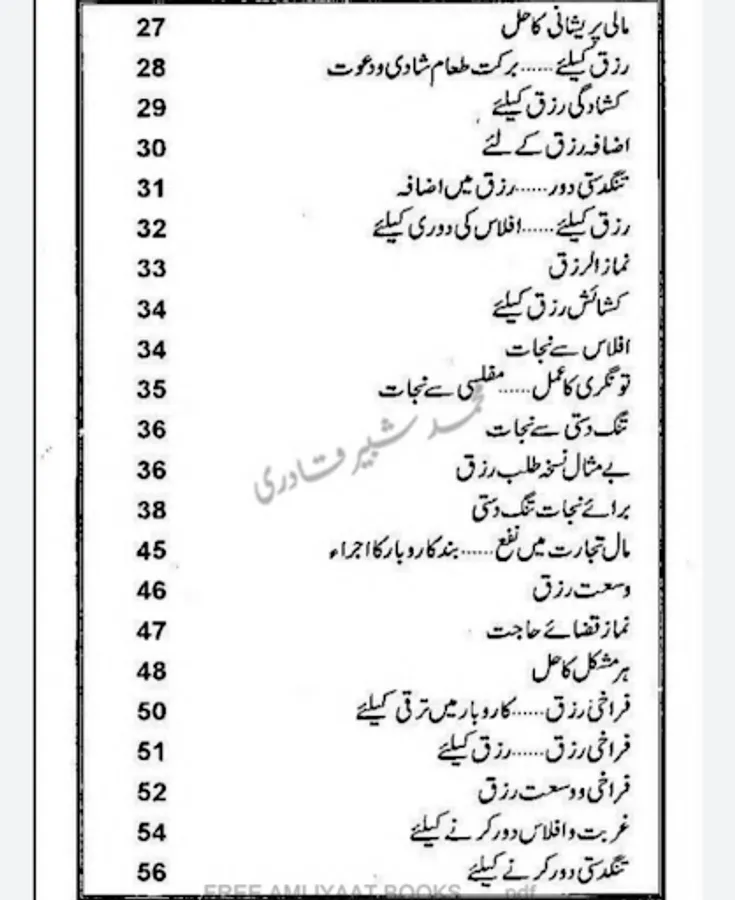 مالی پریشانی کا حل 27
رزق کیلئے......برکت طعام شادی و دعوت 28
کشادگی رزق کیلئے 29
اضافہ رزق کے لئے 30
تنگدستی دور......رزق میں اضافہ 31
رزق کیلئے......افلاس کی دوری کیلئے 32
نماز الرزق 33
کشائش رزق کیلئے 34
افلاس سے نجات 34
تونگری کا عمل......مفلسی سے نجات 35
تنگ دستی سے نجات 36
محمد شبیر قادری
بے مثال نسخہ طلب رزق 36
برائے نجات تنگ دستی 38
مال تجارت میں نفع......بند کاروبار کا اجراء 45
وسعت رزق 46
نماز قضائے حاجت 47
ہر مشکل کا حل 48
فراخیٔ رزق......کاروبار میں ترقی کیلئے 50
فراخی رزق......رزق کیلئے 51
فراخی و وسعت رزق 52
غربت و افلاس دور کرنے کیلئے 54
تنگدستی دور کرنے کیلئے 56
FREE AMLIYAAT BOOKS pdf